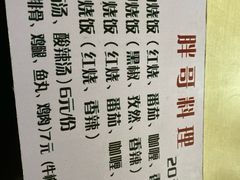 胖哥料理 20
烧饭（红烧、番茄、咖喱、香
烧饭（黑椒、孜然、香辣）
烧饭（红烧、番茄、咖喱、
烧饭（红烧、香辣）
汤、酸辣汤）6元/份
排骨、鸡腿、鱼丸、鸡肉）7元（牛